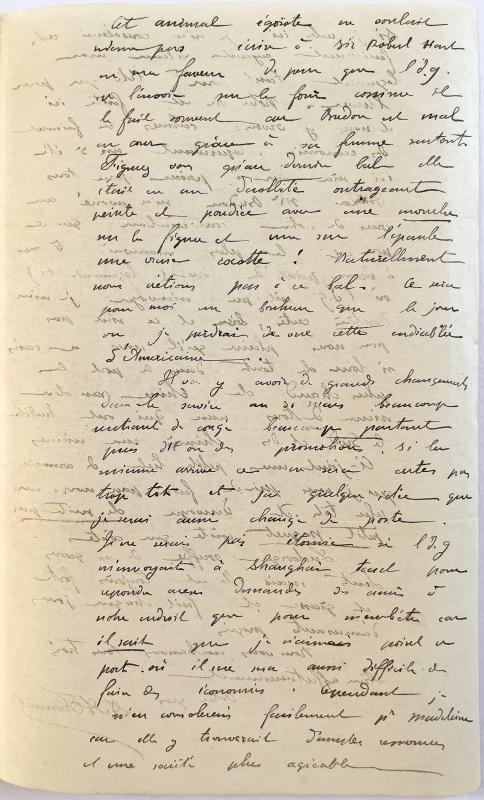 Cet animal égoiste ne voulait
même pas écrire à Sir Robert Hart
en ma faveur de peur que l'I.G.
ne l'envoie sur le four comme il
le fait souvent car Bredon est mal
en cour grâce à sa femme surtout.
Figurez vous qu'au dernier bal elle
était en un décolleté outrageant
peinte et poudrée avec une mouche
sur la figure et une sur l'épaule
une vraie cocotte ! Naturellement
nous n'étions pas à ce bal. Ce sera
pour moi un bonheur que le jour
où je perdrai de vue cette endiablée
d'Américaine.
Il va y avoir de grands changements
dans le service au 31 mars beaucoup
de congé beaucoup partant
puis dit on des promotions. si la
mienne arrive ce ne sera certes pas
trop tot et j'ai quelque idée que
je serai aussi changé de poste.
Je ne serais pas étonné si l'I.G
m'envoyait à Shanghai tout pour
repondre aux demandes des amis à
notre endroit que pour m'embêter car
il sait que je n'aimais point ce
port où il me sera aussi difficile de
faire des économies. Cependant je
m'en consolerais facilement pr Madeleine
car elle y trouverait d'amples ressources
et une société plus agréable